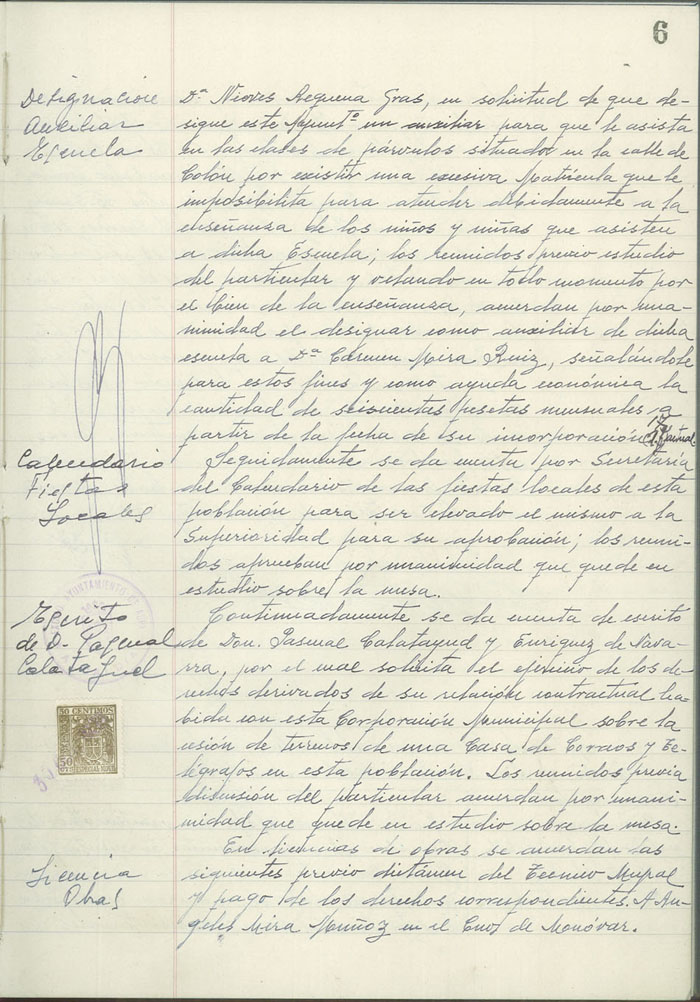 6
Designación
Auxiliar
Escuela
Dª Nieves Requena Gras, en solicitud de que de-
signe este Ayuntº un auxiliar para que le asista
en las clases de párvulos situadas en la calle de
Colón por existir una excesiva Matrícula que le
imposibilita para atender debidamente a la
enseñanza de los niños y niñas que asisten
a dicha Escuela; los reunidos previo estudio
del particular y velando en todo momento por
el bien de la enseñanza, acuerdan por una-
nimidad el designar como auxiliar de dicha
escuela a Dª Carmen Mira Ruiz, señalándole
para estos fines y como ayuda económica la
cantidad de seiscientas pesetas mensuales a
partir de la fecha de su incorporación
Calendario
Fiestas
Locales
Seguidamente se da cuenta por Secretaría
del Calendario de las fiestas locales de esta
población para ser elevado el mismo a la
Superioridad para su aprobación; los reuni-
dos aprueban por unanimidad que quede en
estudio sobre la mesa.
Escrito
de D. Pascual
Calatayud
Continuadamente se da cuenta de escrito
de Don. Pascual Calatayud y Enriquez de Nava-
rra, por el cual solicita el ejercicio de los de-
rechos derivados de su relación contractual ha-
bida con esta Corporación Municipal sobre la
cesión de terrenos de una Casa de Correos y Te-
légrafos en esta población. Los reunidos previa
discusión del particular acuerdan por unani-
midad que quede en estudio sobre la mesa.
50 CENTIMOS
Licencia
Obras
En licencias de obras se acuerdan las
siguientes previo dictámen del Tecnico Mupal
y pago de los derechos correspondientes. A An-
geles Mira Muñoz en el Cno de Monóvar.